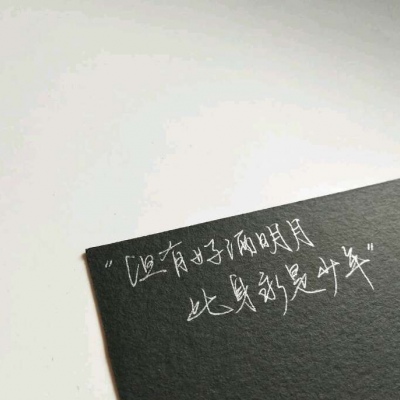 “但有好酒明月
此身永是少年”